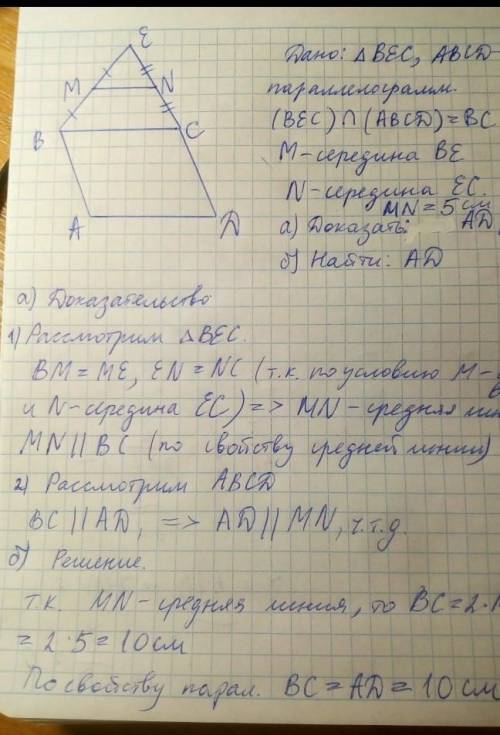 E
M
N
B
C
A
D
Дано: △BEC, ABCD-
параллелограмм.
(BEC)∩(ABCD)=BC
M-середина BE
N-середина EC.
MN=5см
а) Доказать: AD
б) Найти: AD
а) Доказательство
1) Рассмотрим △BEC.
BM=ME, EN=NC (т.к. по условию M-
и N-середина EC)=> MN-средняя
MN||BC (по свойству средней линии)
2) Рассмотрим ABCD
BC||AD, => AD||MN, ч.т.д.
б) Решение.
т.к. MN-средняя линия, то BC=2·
=2·5=10см
По свойству парал. BC=AD=10см